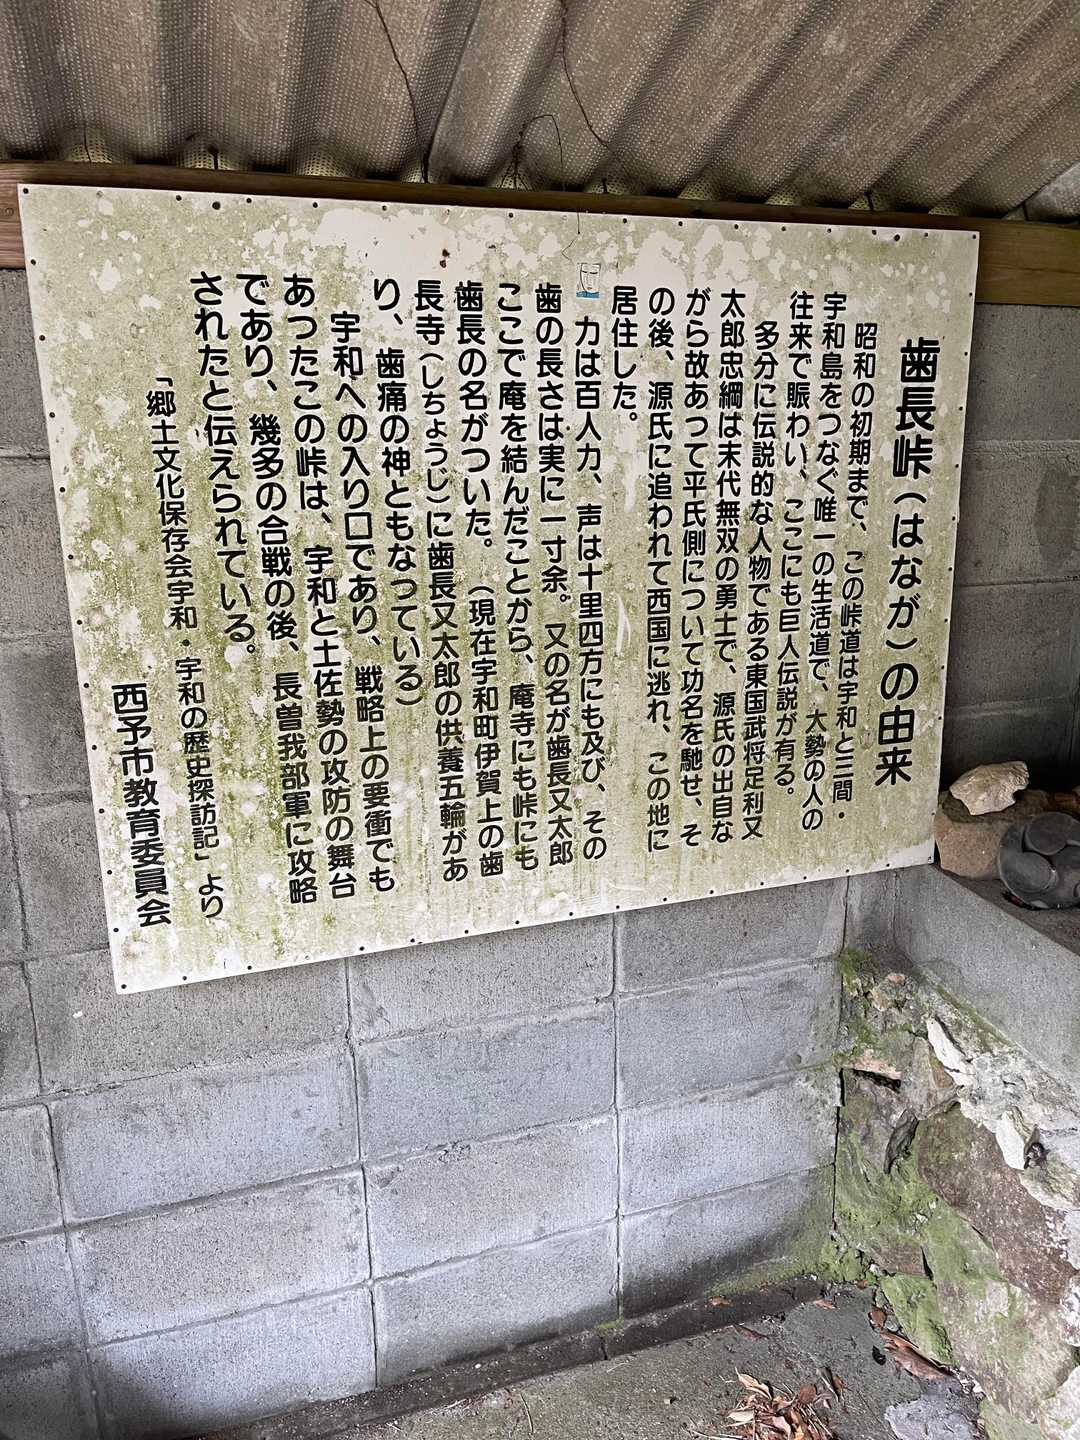 歯長峠(はなが)の由来
昭和の初期まで、この峠道は宇和と三間・
宇和島をつなぐ唯一の生活道で、大勢の人の
往来で賑わい、ここにも巨人伝説が有る。
多分に伝説的な人物である東国武将足利又
太郎忠綱は末代無双の勇士で、源氏の出自な
がら故あって平氏側について功名を馳せ、そ
の後、源氏に追われて西国に逃れ、この地に
居住した。
力は百人力、声は十里四方にも及び、その
歯の長さは実に一寸余。又の名が歯長又太郎
ここで庵を結んだことから、庵寺にも峠にも
歯長の名がついた。(現在宇和町伊賀上の歯
長寺(しちょうじ)に歯長又太郎の供養五輪があ
り、歯痛の神ともなっている)
宇和への入り口であり、戦略上の要衝でも
あったこの峠は、宇和と土佐勢の攻防の舞台
であり、幾多の合戦の後、長曽我部軍に攻略
されたと伝えられている。
「郷土文化保存会宇和・宇和の歴史探訪記」より
西予市教育委員会